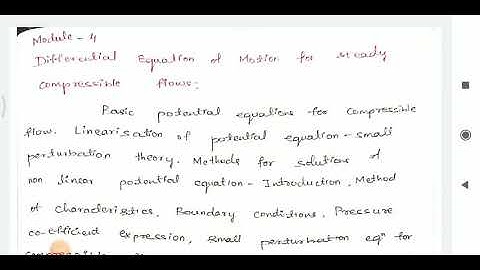 Module - 4
Differential Equation of Motion for steady
compressible flows:
Basic potential equations for compressible
flow. Linearisation of potential equation - small
perturbation theory. Methods for solutions of
non linear potential equation - Introduction, Method
of characteristics, Boundary conditions, Pressure
co-efficient expression, small perturbation eqn for